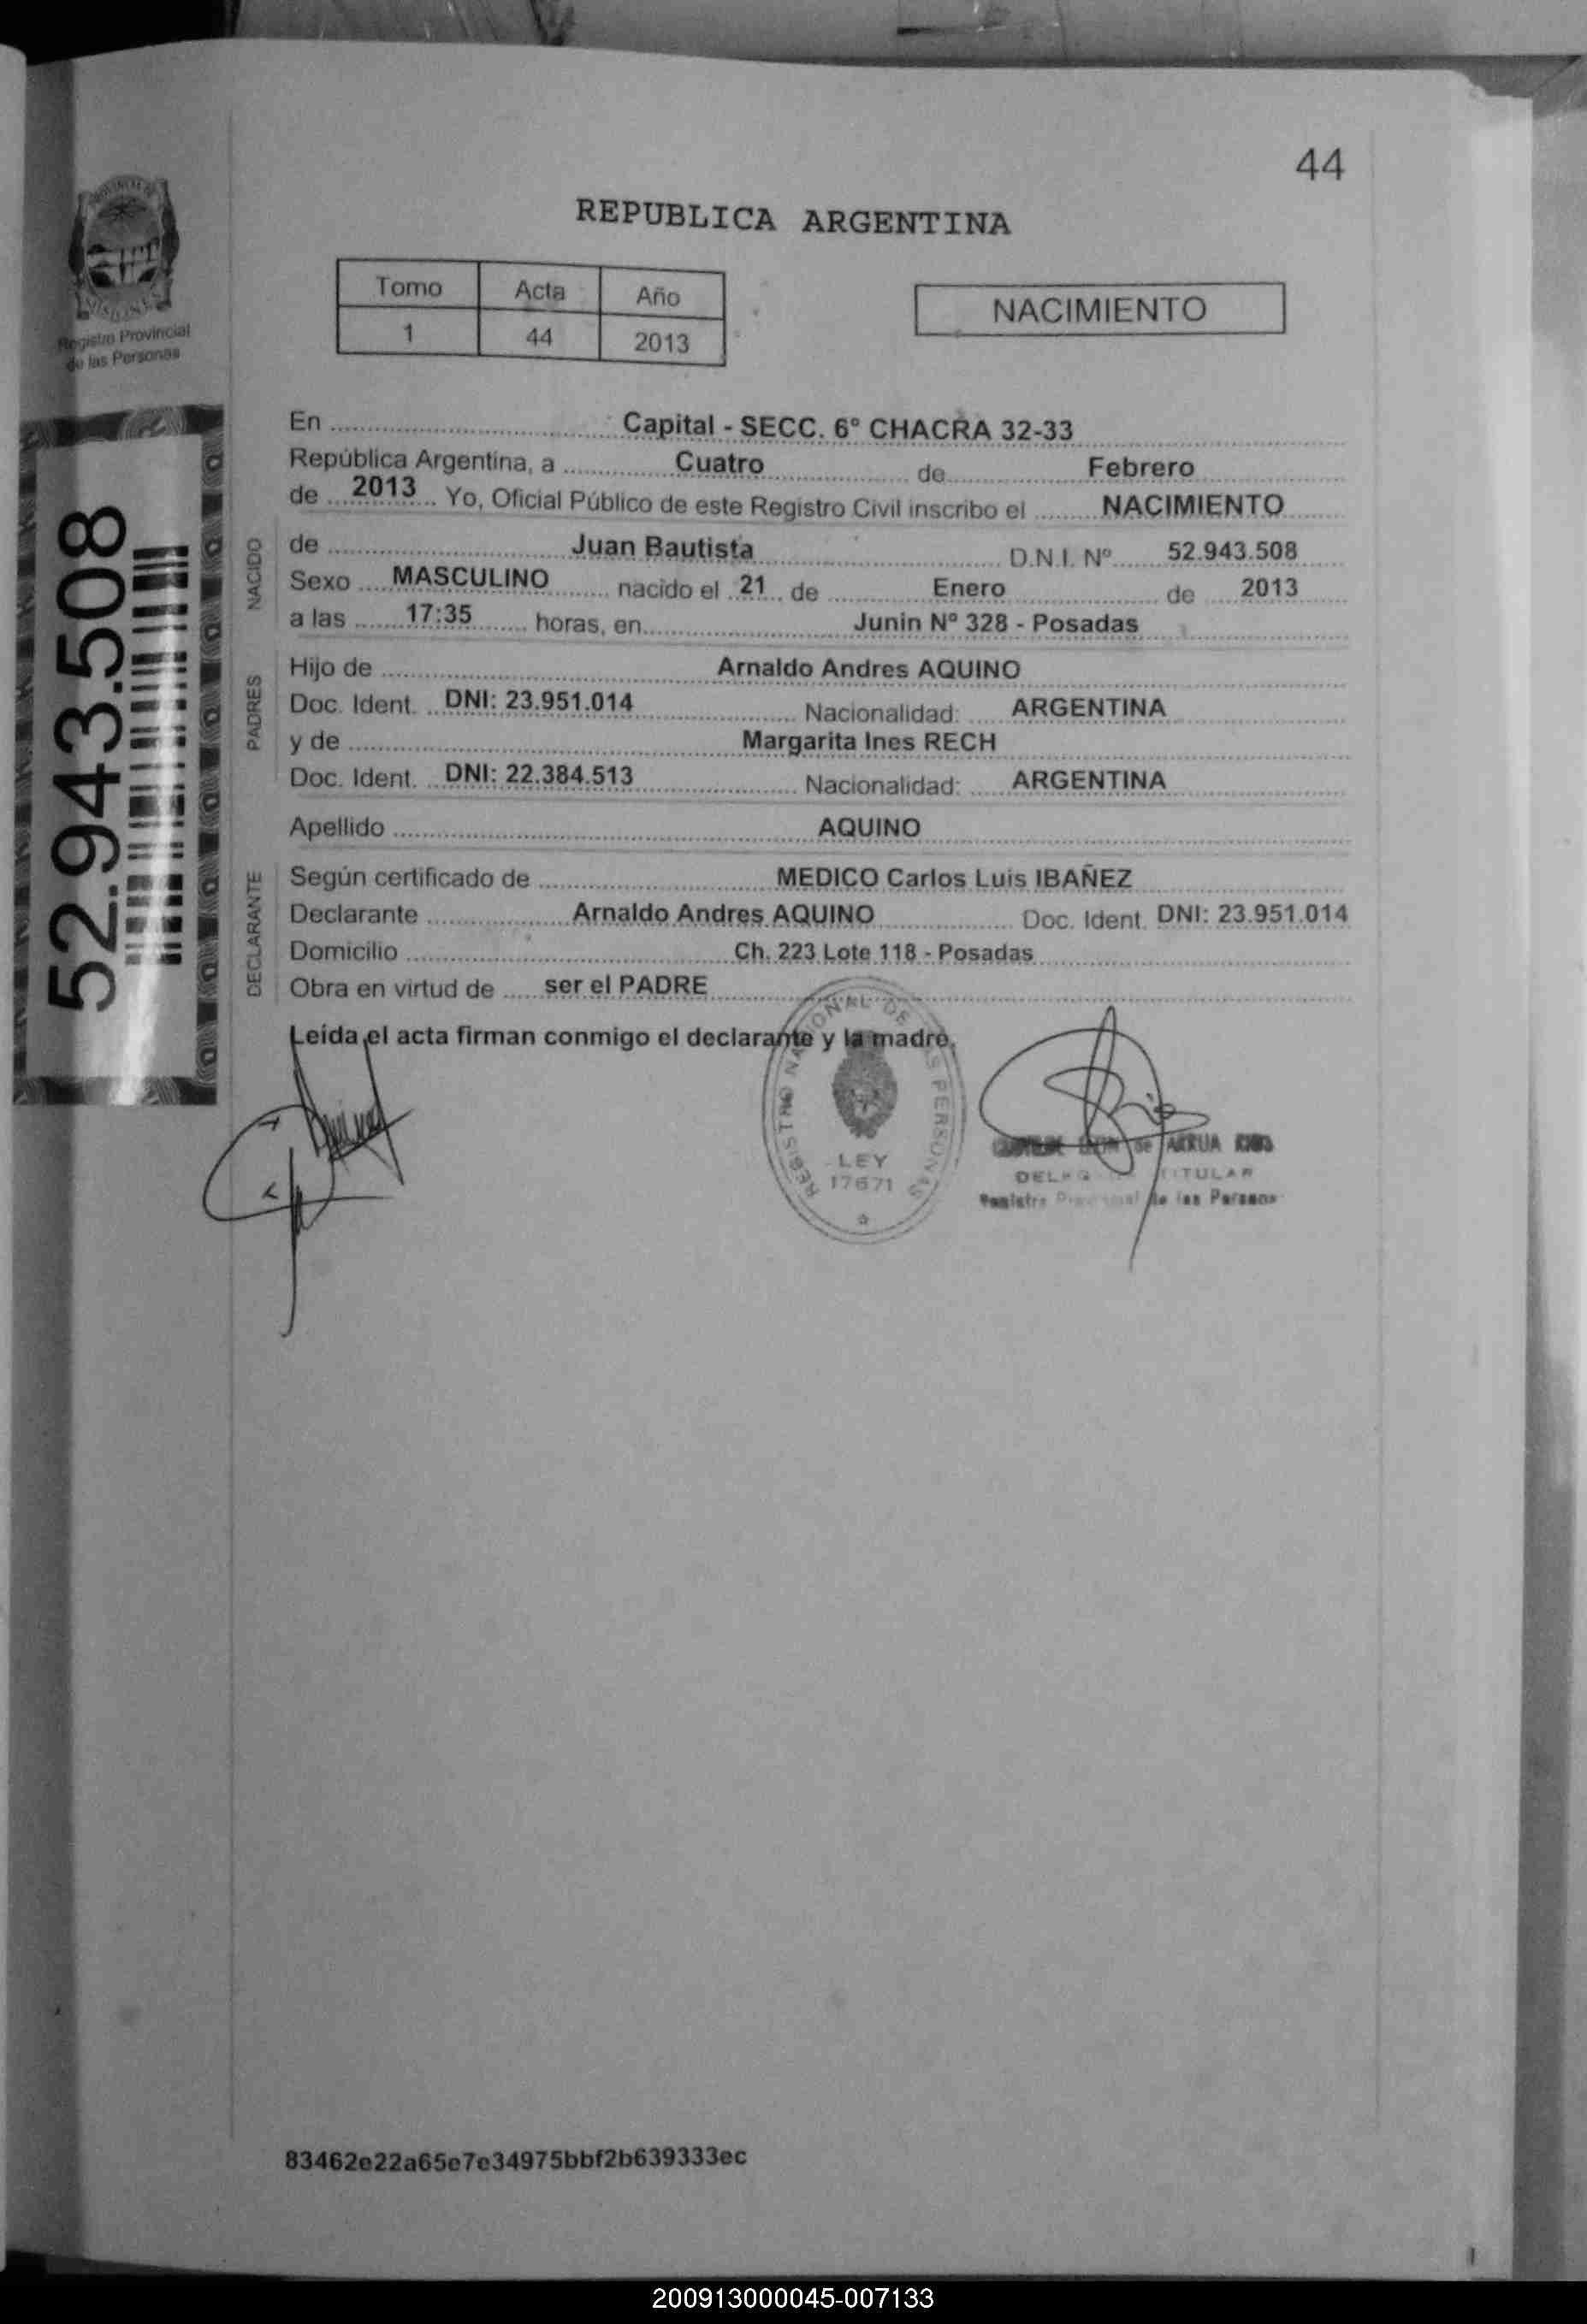 44
REPUBLICA ARGENTINA
Tomo Acta Año
1 44 2013
NACIMIENTO
PROVINCIA DE
MISIONES
Registro Provincial
de las Personas
52.943.508
En Capital - SECC. 6° CHACRA 32-33
República Argentina, a Cuatro de Febrero
de 2013 Yo, Oficial Público de este Registro Civil inscribo el NACIMIENTO
NACIDO
de Juan Bautista D.N.I. Nº 52.943.508
Sexo MASCULINO nacido el 21 de Enero de 2013
a las 17:35 horas, en Junin Nº 328 - Posadas
PADRES
Hijo de Arnaldo Andres AQUINO
Doc. Ident. DNI: 23.951.014 Nacionalidad: ARGENTINA
y de Margarita Ines RECH
Doc. Ident. DNI: 22.384.513 Nacionalidad: ARGENTINA
Apellido AQUINO
DECLARANTE
Según certificado de MEDICO Carlos Luis IBAÑEZ
Declarante Arnaldo Andres AQUINO Doc. Ident. DNI: 23.951.014
Domicilio Ch. 223 Lote 118 - Posadas
Obra en virtud de ser el PADRE
Leída el acta firman conmigo el declarante y la madre.
REGISTRO NACIONAL DE LAS PERSONAS
LEY
17671
de ARRUA
TITULAR
de las Personas
83462e22a65e7e34975bbf2b639333ec
200913000045-007133